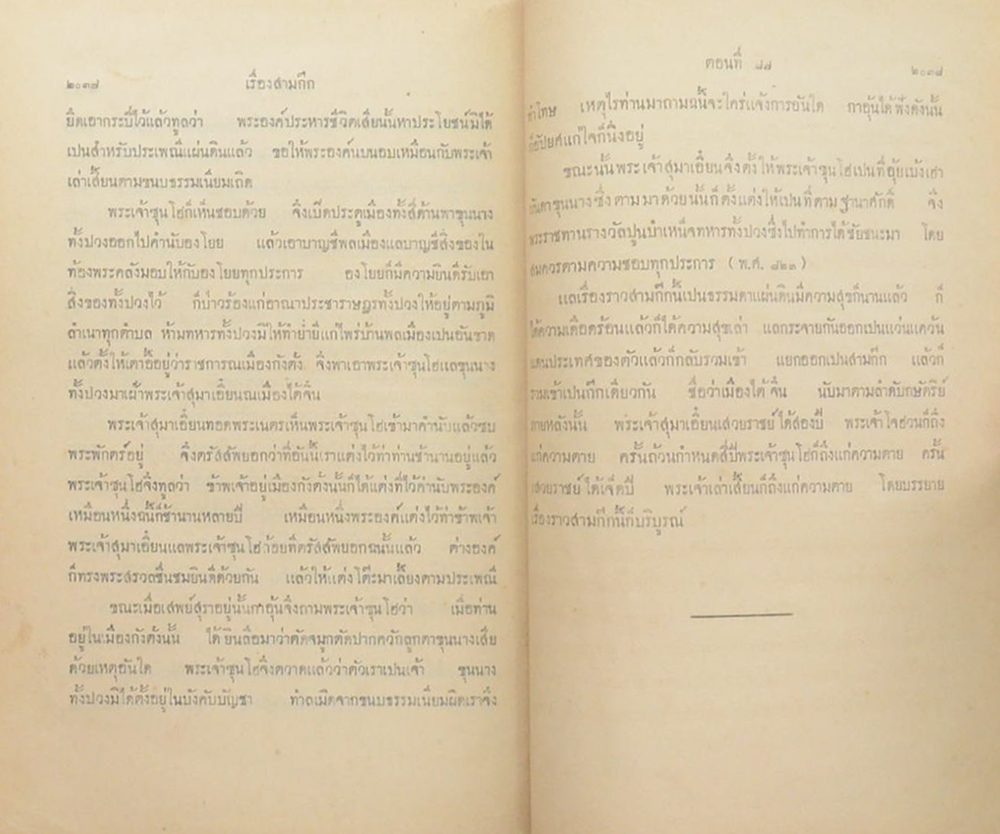 ๒๐๓๗ เรื่องสามก๊ก
ยึดเอากระบี่ไว้แล้วทูลว่า พระองค์ประหารชีวิตเสียนั้นหาประโยชน์มิได้
เปนสำหรับประเพณีแผ่นดินแล้ว ขอให้พระองค์นบนอบเหมือนกับพระเจ้า
เล่าเสี้ยนตามขนบธรรมเนียมเถิด
พระเจ้าซุนโฮก็เห็นชอบด้วย จึงเปิดประตูเมืองทั้งสี่ด้านพาขุนนาง
ทั้งปวงออกไปคำนับอองโยย แล้วเอาบาญชีพลเมืองแลบาญชีสิ่งของใน
ท้องพระคลังมอบให้กับอองโยยทุกประการ อองโยยก็มีความยินดีรับเอา
สิ่งของทั้งปวงไว้ ก็ป่าวร้องแก่อาณาประชาราษฎรทั้งปวงให้อยู่ตามภูมิ
ลำเนาทุกตำบล ห้ามทหารทั้งปวงมิให้ทำย่ำยีแก่ไพร่บ้านพลเมืองเปนอันขาด
แล้วตั้งให้เตาอี้อยู่ว่าราชการณเมืองกังตั๋ง จึงพาเอาพระเจ้าซุนโฮแลขุนนาง
ทั้งปวงมาเฝ้าพระเจ้าสุมาเอี๋ยนณเมืองไต้จิ๋น
พระเจ้าสุมาเอี๋ยนทอดพระเนตรเห็นพระเจ้าซุนโฮเข้ามาคำนับแล้วซบ
พระพักตร์อยู่ จึงตรัสสัพยอกว่าที่อันนี้เราแต่งไว้ท่าท่านช้านานอยู่แล้ว
พระเจ้าซุนโฮจึงทูลว่า ข้าพเจ้าอยู่เมืองกังตั๋งนั้นก็ได้แต่งที่ไว้คำนับพระองค์
เหมือนหนึ่งฉนี้ก็ช้านานหลายปี เหมือนหนึ่งพระองค์แต่งไว้ท่าข้าพเจ้า
พระเจ้าสุมาเอี๋ยนแลพระเจ้าซุนโฮถ้อยทีตรัสสัพยอกฉนั้นแล้ว ต่างองค์
ก็ทรงพระสรวลชื่นชมยินดีด้วยกัน แล้วให้แต่งโต๊ะมาเลี้ยงตามประเพณี
ขณะเมื่อเสพย์สุราอยู่นั้นกาอุ้นจึงถามพระเจ้าซุนโฮว่า เมื่อท่าน
อยู่ในเมืองกังตั๋งนั้น ได้ยินลือมาว่าตัดจมูกตัดปากควักลูกตาขุนนางเสีย
ด้วยเหตุอันใด พระเจ้าซุนโฮจึงตวาดแล้วว่าตัวเราเปนเจ้า ขุนนาง
ทั้งปวงมิได้ตั้งอยู่ในบังคับบัญชา ทำลเมิดจากขนบธรรมเนียมผิดเราจึง
ตอนที่ ๘๗ ๒๐๓๘
ทำโทษ เหตุไรท่านมาถามฉนี้จะใคร่แจ้งการอันใด กาอุ้นได้ฟังดังนั้น
ก็อัปยศแก่ใจก็นิ่งอยู่
ขณะนั้นพระเจ้าสุมาเอี๋ยนจึงตั้งให้พระเจ้าซุนโฮเปนที่อุ้ยเบ้งเฮา
ขุนนางซึ่งตามมาด้วยนั้นก็ตั้งแต่งให้เปนที่ตามฐานาศักดิ์ จึง
พระราชทานรางวัลปูนบำเหน็จทหารทั้งปวงซึ่งไปทำการได้ชัยชนะมา โดย
สมควรตามความชอบทุกประการ (พ.ศ. ๘๒๓)
แลเรื่องราวสามก๊กนี้เปนธรรมดาแผ่นดินมีความสุขก็นานแล้ว ก็
ได้ความเดือดร้อนแล้วก็ได้ความสุขเล่า แลกระจายกันออกเปนแว่นแคว้น
แดนประเทศของตัวแล้วก็กลับรวมเข้า แยกออกเปนสามก๊ก แล้วก็
รวมเข้าเปนก๊กเดียวกัน ชื่อว่าเมืองไต้จิ๋น นับมาตามลำดับกษัตริย์
ภายหลังนั้น พระเจ้าสุมาเอี๋ยนเสวยราชย์ได้สองปี พระเจ้าโจฮวนก็ถึง
แก่ความตาย ครั้นถ้วนกำหนดสี่ปีพระเจ้าซุนโฮก็ถึงแก่ความตาย ครั้น
เสวยราชย์ได้เจ็ดปี พระเจ้าเล่าเสี้ยนก็ถึงแก่ความตาย โดยบรรยาย
เรื่องราวสามก๊กนี้ก็บริบูรณ์